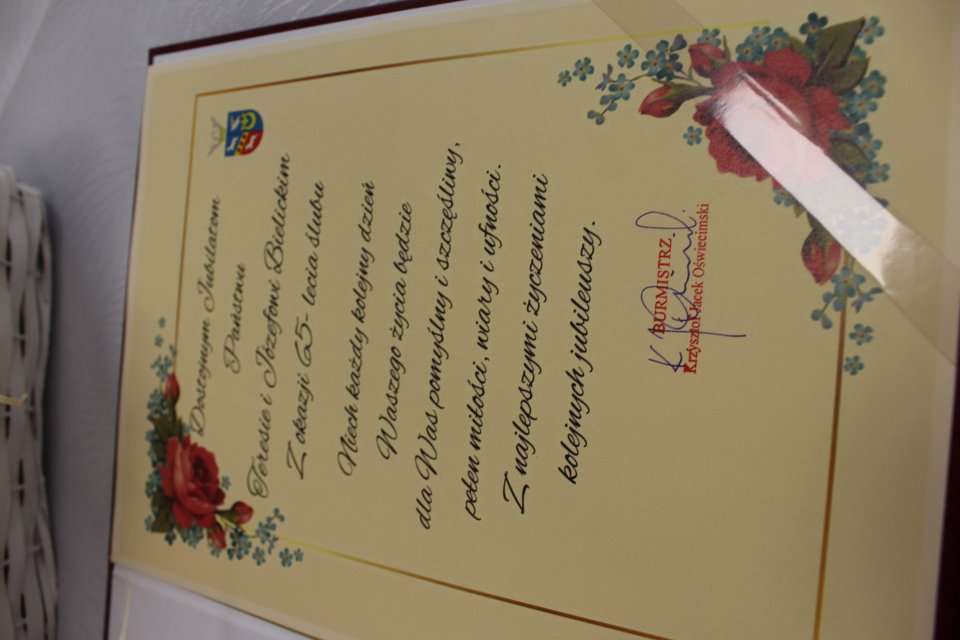 Dostojnym Jubilatom
Państwu
Teresie i Józefowi Bielickim
Z okazji 65-lecia ślubu
Niech każdy kolejny dzień
Waszego życia będzie
dla Was pomyślny i szczęśliwy,
pełen miłości, wiary i ufności.
Z najlepszymi życzeniami
kolejnych jubileuszy.
BURMISTRZ
Krzysztof Jacek Oświecimski